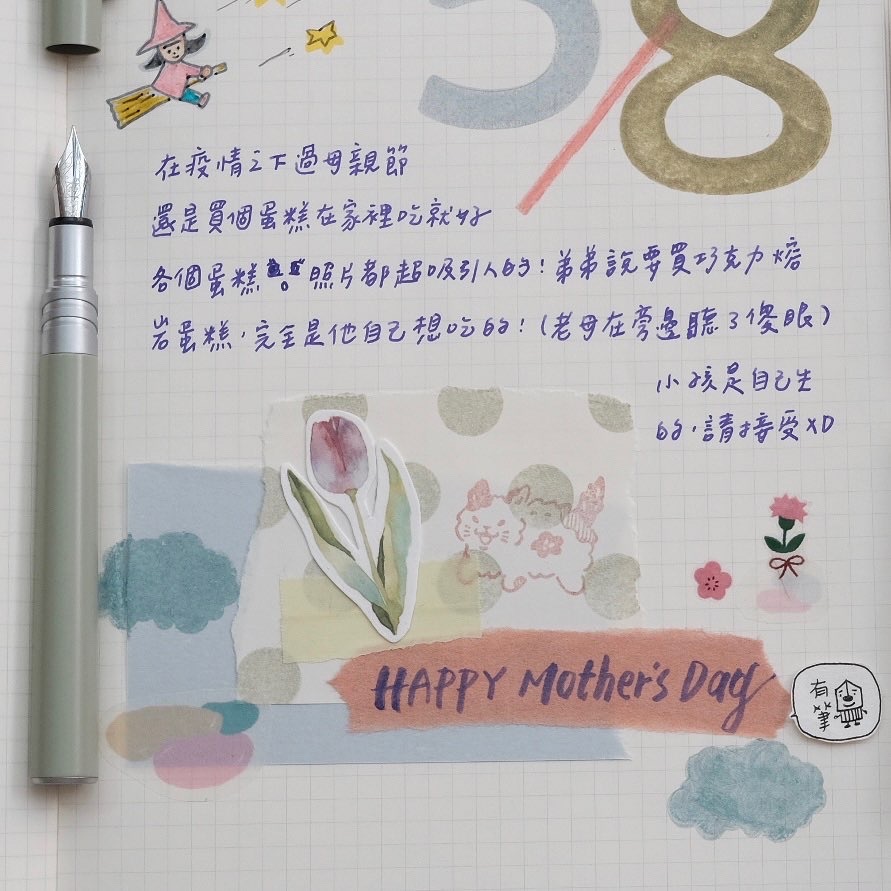 58
在疫情之下過母親節
還是買個蛋糕在家裡吃就好
各個蛋糕照片都超吸引人的!弟弟說要買巧克力熔
岩蛋糕,完全是他自己想吃的!(老母在旁邊聽了傻眼)
小孩是自己生
的,請接受XD
HAPPY Mother's Day
有筆